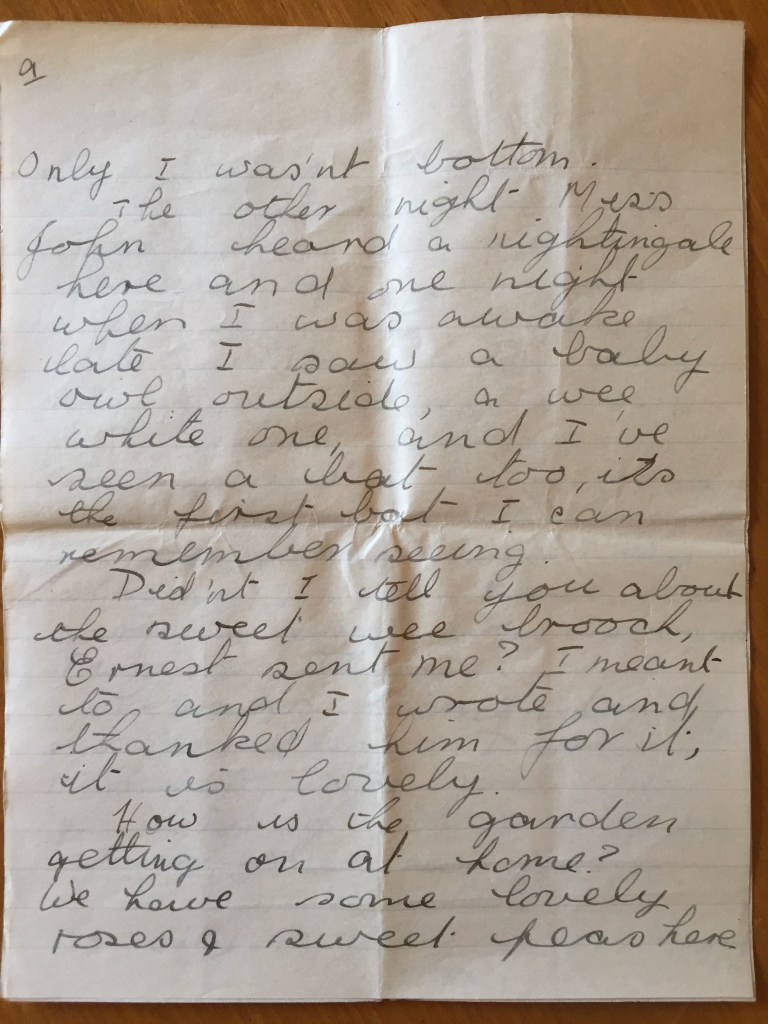 9
Only I was'nt bottom.
The other night Miss
John heard a nightingale
here and one night
when I was awake
late I saw a baby
owl outside, a wee
white one, and I've
seen a bat too, its
the first bat I can
remember seeing.
Did'nt I tell you about
the sweet wee brooch,
Ernest sent me? I meant
to and I wrote and
thanked him for it,
it is lovely.
How is the garden
getting on at home?
We have some lovely
roses & sweet peas here